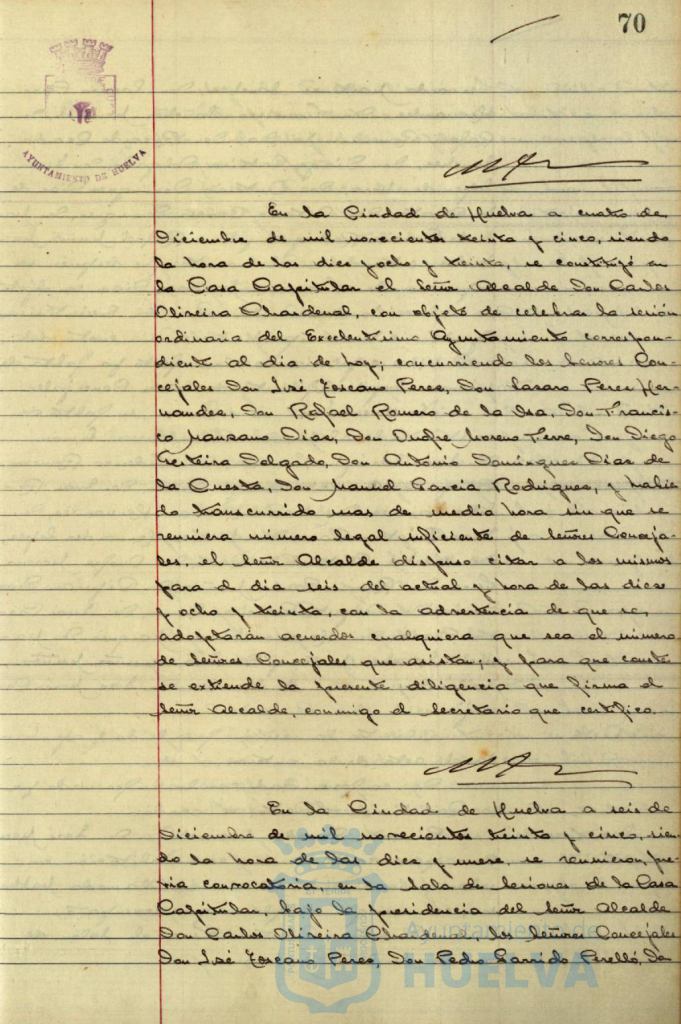 70
AYUNTAMIENTO DE HUELVA
En la Ciudad de Huelva a cuatro de
Diciembre de mil novecientos treinta y cinco, siendo
la hora de las diez y ocho y treinta, se constituyó en
la Casa Capitular el Señor Alcalde Don Carlos
Oliveira Chardenal, con objeto de celebrar la sesión
ordinaria del Excelentísimo Ayuntamiento correspon-
diente al dia de hoy; concurriendo los Señores Con-
cejales Don José Toscano Perez, Don Lazaro Perez Her-
nandez, Don Rafael Romero de la Osa, Don Francis-
co Manzano Diaz, Don Onofre Moreno Ferre, Don Diego
Teiteira Delgado, Don Antonio Dominguez Diaz de
la Cuesta, Don Manuel Garcia Rodriguez, y habien
do transcurrido mas de media hora sin que se
reuniera número legal suficiente de Señores Conceja-
les, el Señor Alcalde dispuso citar a los mismos
para el dia seis del actual y hora de las diez
y ocho y treinta, con la advertencia de que se
adoptarán acuerdos cualquiera que sea el número
de Señores Concejales que asistan; y para que conste
se extiende la presente diligencia que firma el
Señor Alcalde, conmigo el Secretario que certifico.
En la Ciudad de Huelva a seis de
Diciembre de mil novecientos treinta y cinco, sien-
do la hora de las diez y nueve, se reunieron, pre-
via convocatoria, en la Sala de Sesiones de la Casa
Capitular, bajo la presidencia del Señor Alcalde
Don Carlos Oliveira Chardenal, los Señores Concejales
Don José Toscano Perez, Don Pedro Garrido Perelló, Don
Ayuntamiento de
HUELVA